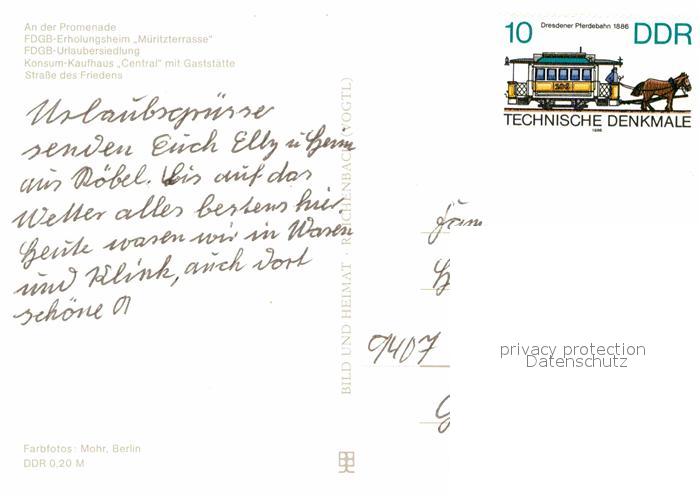 An der Promenade
FDGB-Erholungsheim „Müritzterrasse"
FDGB-Urlaubersiedlung
Konsum-Kaufhaus „Central" mit Gaststätte
Straße des Friedens
Urlaubsgrüsse
senden Euch Elly u
aus Röbel. Bis auf das
Wetter alles bestens hier
Heute waren wir in Waren
und Klink, auch dort
schöne
BILD UND HEIMAT · REICHENBACH (VOGTL)
Farbfotos: Mohr, Berlin
DDR 0,20 M
10 Dresdener Pferdebahn 1886 DDR
TECHNISCHE DENKMALE
1986
Fam
9407
privacy protection
Datenschutz